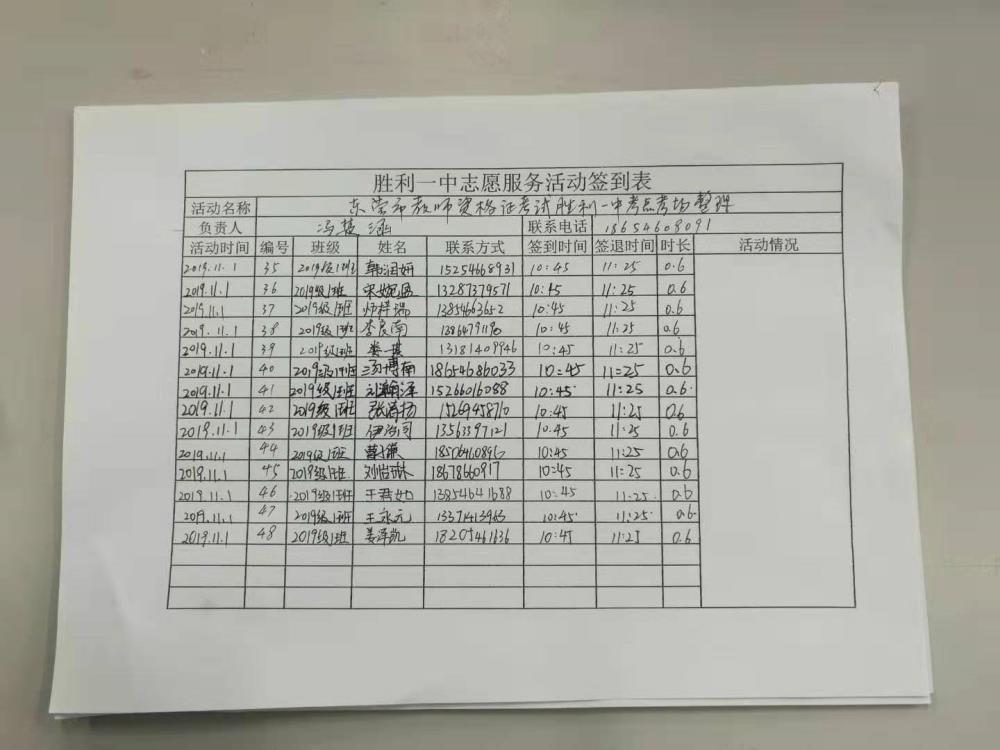 胜利一中志愿服务活动签到表
活动名称 东营市教师资格证考试胜利一中考点考场整理
负责人 冯 涵 联系电话 18654608091
活动时间 编号 班级 姓名 联系方式 签到时间 签退时间 时长 活动情况
2019.11.1 35 2019级1班 韩润妍 15254668931 10:45 11:25 0.6
2019.11.1 36 2019级1班 宋婉 13287379571 10:45 11:25 0.6
2019.11.1 37 2019级1班 师梓瑞 13854663652 10:45 11:25 0.6
2019.11.1 38 2019级1班 李良南 10:45 11:25 0.6
2019.11.1 39 2019级1班 13181409946 10:45 11:25 0.6
2019.11.1 40 2019级1班 博南 18654686033 10:45 11:25 0.6
2019.11.1 41 2019级1班 刘瀚泽 15266016088 10:45 11:25 0.6
2019.11.1 42 2019级1班 张海扬 15269458710 10:45 11:25 0.6
2019.11.1 43 2019级1班 伊 13563397121 10:45 11:25 0.6
2019.11.1 44 2019级1班 10:45 11:25 0.6
2019.11.1 45 2019级1班 刘怡琳 18678660917 10:45 11:25 0.6
2019.11.1 46 2019级1班 王君如 13854641688 10:45 11:25 0.6
2019.11.1 47 2019级1班 王永元 13371413963 10:45 11:25 0.6
2019.11.1 48 2019级1班 姜泽凯 18205461636 10:45 11:25 0.6